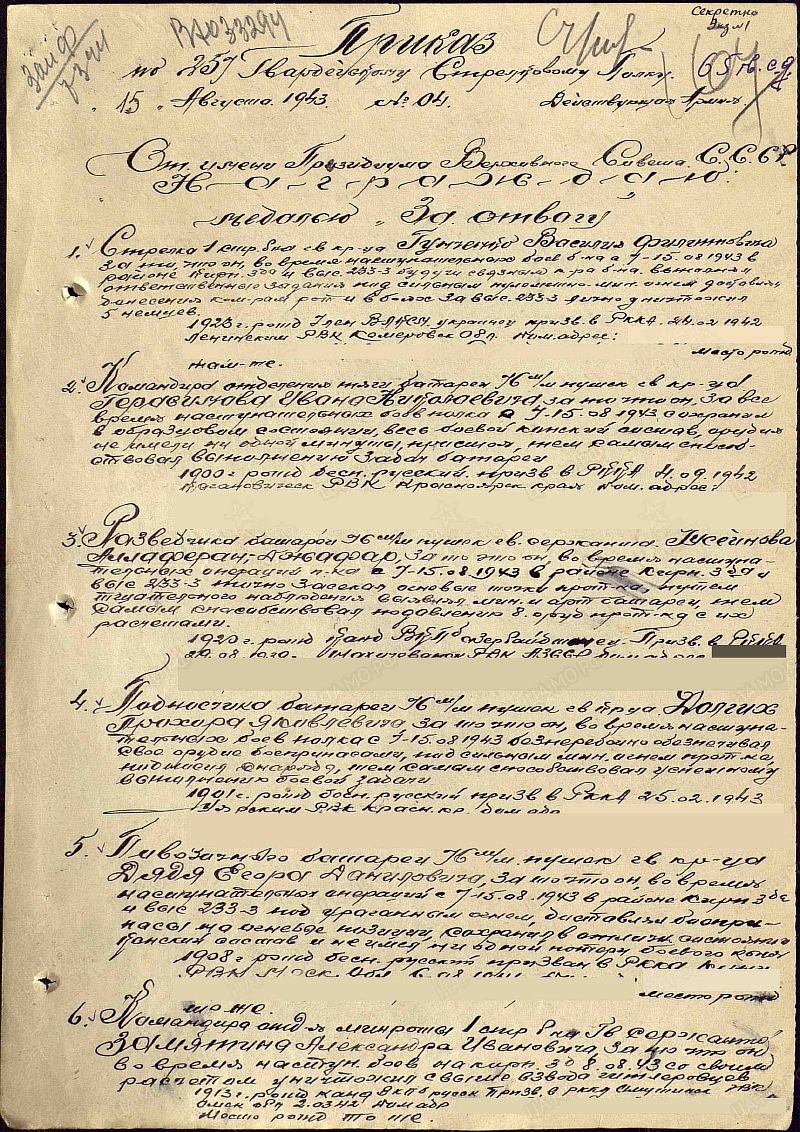 Секретно
Экз №1
Приказ
по 257 Гвардейскому Стрелковому Полку. 65 гв. сд
15 Августа 1943 г. № 04. Действующая Армия.
От имени Президиума Верховного Совета С.С.С.Р.
Награждаю:
медалью „За отвагу"
1. Стрелка 1 стр. б-на гв кр-ца Гунченко Василия Филипповича
за то, что он, во время наступательных боев б-на с 7-15.08 1943 в
районе кирп. з-да и выс 233-3 будучи связным к-ра б-на, выполнял
ответственные задания под сильным пулеметно-мин. огнем доставлял
донесения ком-рам рот и в боях за выс. 233-3 лично уничтожил
5 немцев.
1923 г. рожд Член ВЛКСМ. украинец призв. в РККА 24.02 1942
Ленинским РВК Кемеровск обл. дом. адрес:
место рожд.
там-же.
2. Командира отделения тяги батареи 76 м/м пушек гв кр-ца
Герасимова Ивана Николаевича за то что он, за все
время наступательных боев полка с 7-15.08 1943 сохранил
в образцовом состоянии, весь боевой конский состав, орудия
не имели ни одной минуты простоя, тем самым способ-
ствовал выполнению задач батареи
1900 г рожд бесп. русский. призв в РККА 4.09.1942
РВК Красноярск края дом. адрес:
3. Разведчика батареи 76 м/м пушек гв. сержанта
за то что он, во время наступа-
тельных операций п-ка с 7-15.08 1943 в районе кирп. з-да и
выс 233-3 лично засекал огневые точки прот-ка, путем
тщательного наблюдения выявлял мин. и арт батареи, и тем
самым способствовал подавлению 8 оруд прот-ка с их
расчетами.
1920 г. рожд Канд ВКПб азербайджанец. Призв. в РККА
РВК АЗССР дом адрес
4. Подносчика батареи 76 м/м пушек гв кр-ца Долгих
Прохора Яковлевича за то что он, во время наступа-
тельных боев полка с 7-15.08 1943 безперебойно обеспечивал
свое орудие боеприпасами, под сильным мин. огнем прот-ка,
тем самым способствовал успешному
выполнению боевой задачи
1901 г. рожд бесп. русский призв в РККА 25.02.1943
Уярским РВК Красн. кр. дом адр
5. Повозочного батареи 76 м/м. пушек гв кр-ца
Дядя Егора Даниловича, за то что он, во время
наступательных операций с 7-15.08 1943 в районе кирп з-да
и выс 233-3 под ураганным огнем, доставлял боепри-
пасы на огневые позиции, сохранил в отличн. состоянии
конский состав и не имел ни одной потери боевого коня
1908 г рожд бесп. русский призван в РККА
РВК Моск. обл
место рожд
то же.
6. Командира отд-я минроты 1 стр б-на Гв сержанта
Замятина Александра Ивановича за то что он
во время наступ. боев на кирп. з-д 8.08.43 со своим
расчетом уничтожил свыше взвода гитлеровцев
1913 г. рожд канд ВКПб русск призв. в РККА
Омск обл 2.03 42 дом адр
Место рожд то же.